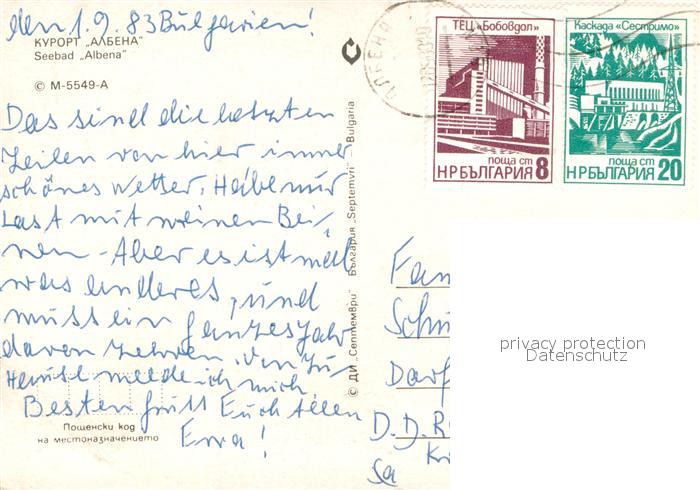 den 1.9.83 Bulgarien!
КУРОРТ „АЛБЕНА"
Seebad „Albena"
© М-5549-А
Das sind die letzten
Zeilen von hier immer
schönes Wetter. Habe nur
Last mit meinen Bei-
nen - Aber es ist mal
was anderes, und
muss ein ganzes Jahr
davon zehren. Von Zu-
Hause melde ich mich
Besten Gruß Euch allen
Erna!
Пощенски код
на местоназначението
© ДИ „Септември" България „Septemvri" - Bulgaria
АЛБЕНА
ТЕЦ „Бобовдол"
поща ст
НР БЪЛГАРИЯ 8
Каскада „Сестримо"
поща ст
НР БЪЛГАРИЯ 20
Fam
Schu
Dorf
D.D.R
Kr
Sa
privacy protection
Datenschutz